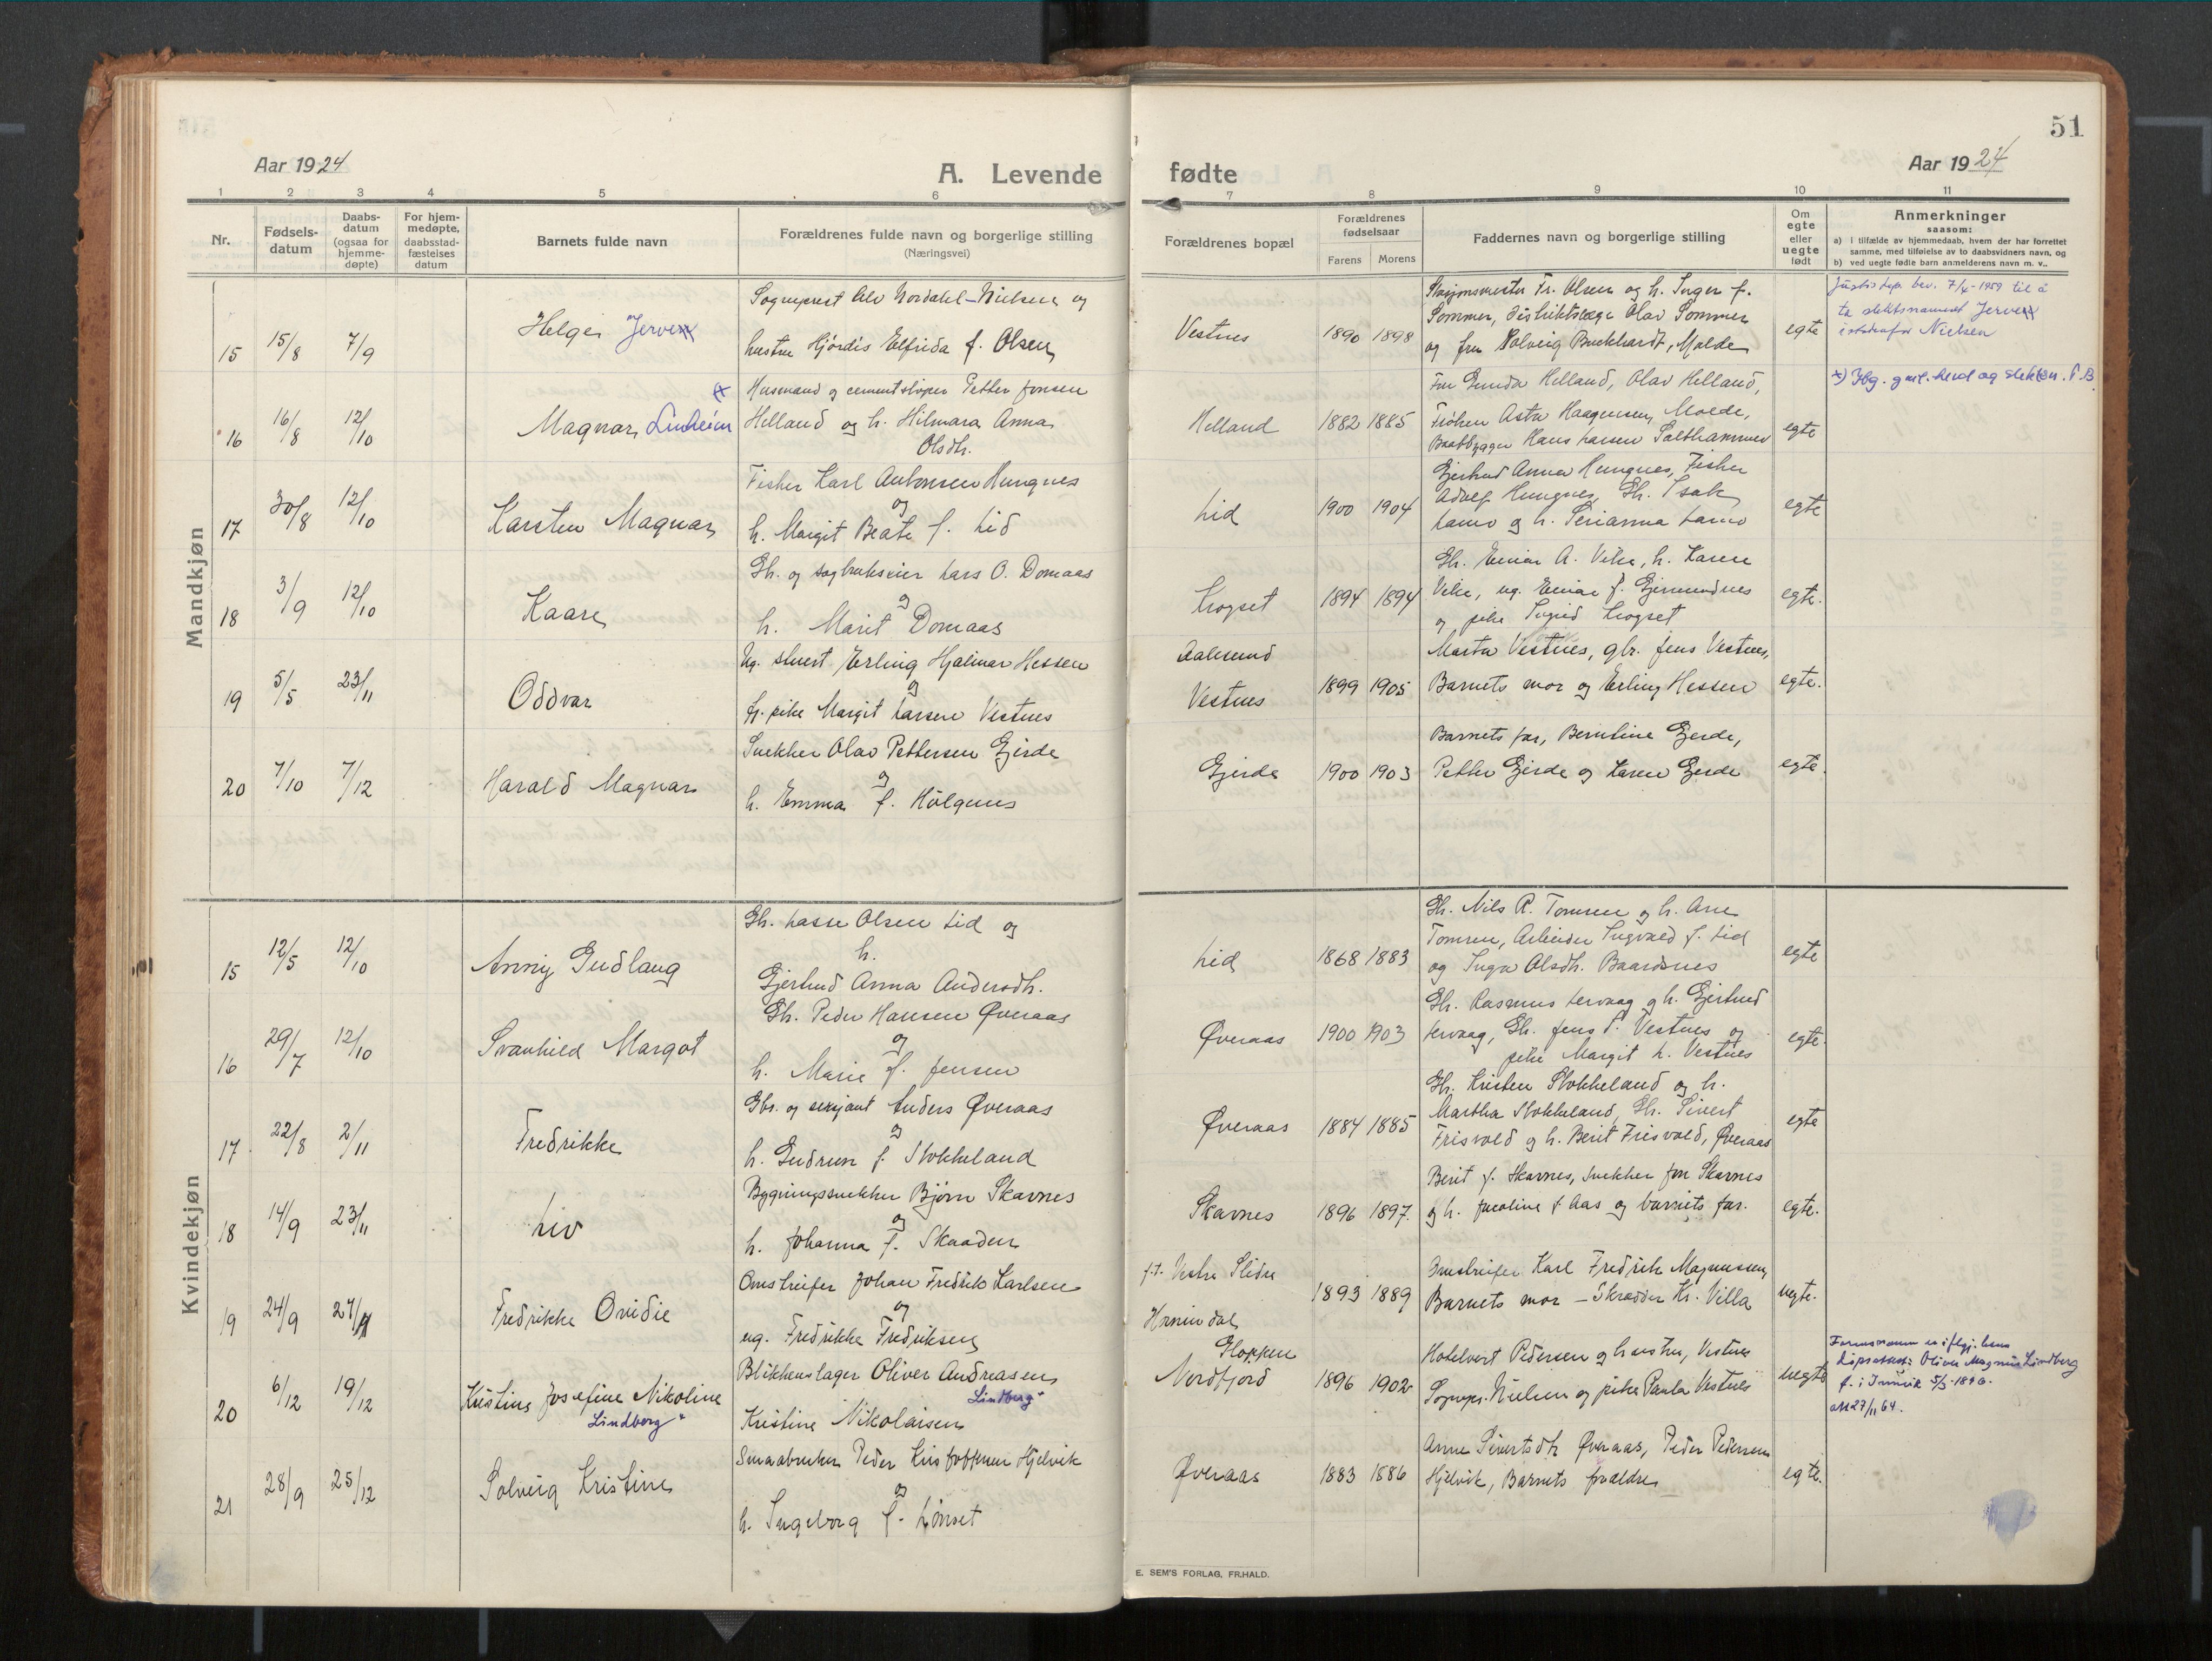 51
Aar 1924
A. Levende
fødte
Aar 1924
1 2 3 4 5 6 7 8 9 10 11
Nr.
Fødsels-
datum
Daabs-
datum
(ogsaa for
hjemme-
døpte)
For hjem-
medøpte,
daabsstad-
fæstelses
datum
Barnets fulde navn
Forældrenes fulde navn og borgerlige stilling
(Næringsvei)
Forældrenes bopæl
Forældrenes
fødselsaar
Farens Morens
Faddernes navn og borgerlige stilling
Om
egte
eller
uegte
født
Anmerkninger
saasom:
a) i tilfælde av hjemmedaab, hvem der har forrettet
samme, med tilføielse av to daabsvidners navn, og
b) ved uegte fødte barn anmelderens navn m. v.
Mandkjøn
15 15/8 7/9 Helge Jerve
Sogneprest Alv Nordahl-Nielsen og
hustru Hjördis Elfrida f. Olsen
Vestnes 1890 1898
Stasjonsmester Fr. Olsen og h. Inger f.
Sommer, Distriktslæge Olav Sommer
og fru Solveig Buckhardt, Molde
egte
Justisdep. bev. 7/4-1959 til å
ta slektsnavnet Jerve
istedenfor Nielsen
16 16/8 12/10 Magnar Lindheim
Husmand og cementstøper Petter Jonsen
Helland og h. Hilmara Anna
Olsdtr.
Helland 1882 1885
Fru Gunda Helland, Olav Helland,
Frøken Asta Haagensen, Molde,
Baatbygger Hans Larsen Salthammer
egte
17 30/8 12/10 Karsten Magnar
Fisker Karl Antonsen Hungnes
og
h. Margit Beate f. Lid
Lid 1900 1904
Gjertrud Anna Hungnes, Fisker
Adolf Hungnes, Gb. Isak
Lamo og h. Serianna Lamo
egte
18 3/9 12/10 Kaare
Gb. og sagbrukseier Lars O. Domaas
og
h. Marit Domaas
Trogset 1894 1894
Gb. Einar A. Vike, h. Karen
Vike, ug. Einar f. Gjermundnes
og pike Sigrid Trogset
egte.
19 5/5 23/11 Oddvar
Ug. Erling Hjalmar Hessen
og
fr. pike Margit Larsen Vestnes
Aalesund
Vestnes 1899 1905
Marta Vestnes, gbr. Jens Vestnes,
Barnets mor og Erling Hessen
egte.
20 7/10 7/12 Harald Magnar
Snekker Olav Pettersen Gjerde
og
h. Emma f. Holgenes
Gjerde 1900 1903
Barnets far, Berntine Gjerde,
Petter Gjerde og Karen Gjerde
egte.
Kvindekjøn
15 12/5 12/10 Anny Gudlaug
Gb. Lasse Olsen Lid og
h.
Gjertrud Anna Andersdtr.
Lid 1868 1883
Gb. Nils R. Tomren og h. Ane
Tomren, Arbeider Ingvald f. Lid
og Inga Olsdtr. Baardsnes
egte
16 29/7 12/10 Svanhild Margot
Gb. Peder Hansen Øveraas
og
h. Marie f. Jensen
Øveraas 1900 1903
Gb. Rasmus Lervaag og h. Gjertrud
Lervaag, Gb. Jens P. Vestnes og
pike Margit L. Vestnes
egte.
17 22/8 2/11 Fredrikke
Gbr. og sersjant Anders Øveraas
og
h. Gudrun f. Stokkeland
Øveraas 1884 1885
Gb. Kristen Stokkeland og h.
Martha Stokkeland, Gb. Sivert
Frisvold og h. Berit Frisvold, Øveraas
egte
18 14/9 23/11 Liv
Bygningssnekker Bjørn Skarnes
og
h. Johanna f. Skaaden
Skarnes 1896 1897.
Berit f. Skarnes, snekker Jon Skarnes
og h. Jacoline f. Aas og barnets far.
egte.
19 24/9 27/11 Fredrikke Ovidie
Omstreifer Johan Fredrik Karlsen
og
ug. Fredrikke Fredriksen
f.t. Vestre Slidre
Hornindal
1893 1889
Omstreifer Karl Fredrik Magnussen,
Barnets mor – Skrædder Kr. Villa
uegte.
20 6/12 19/12 Kristine Josefine Nikoline
Lindberg
Blikkenslager Oliver Andreasen
Lindberg
Kristine Nikolaisen
Gloppen
Nordfjord 1896 1902
Hotelvert Pedersen og hustru, Vestnes
Sognepr. Nielsen og pike Paula Vestnes
uegte
Farens navn er iflg. hans
dåpsattest: Oliver Magnus Lindberg
f. i Innvik 5/3-1896.
27/11 64.
21 28/9 25/12 Solveig Kristine
Smaabruker Peder Kristoffersen Hjelvik
og
h. Ingeborg f. Lönset
Øveraas 1883 1886
Anne Sivertsdtr Øveraas, Peder Pedersen
Hjelvik, Barnets forældre
egte.
E. SEM'S FORLAG, FR.HALD.